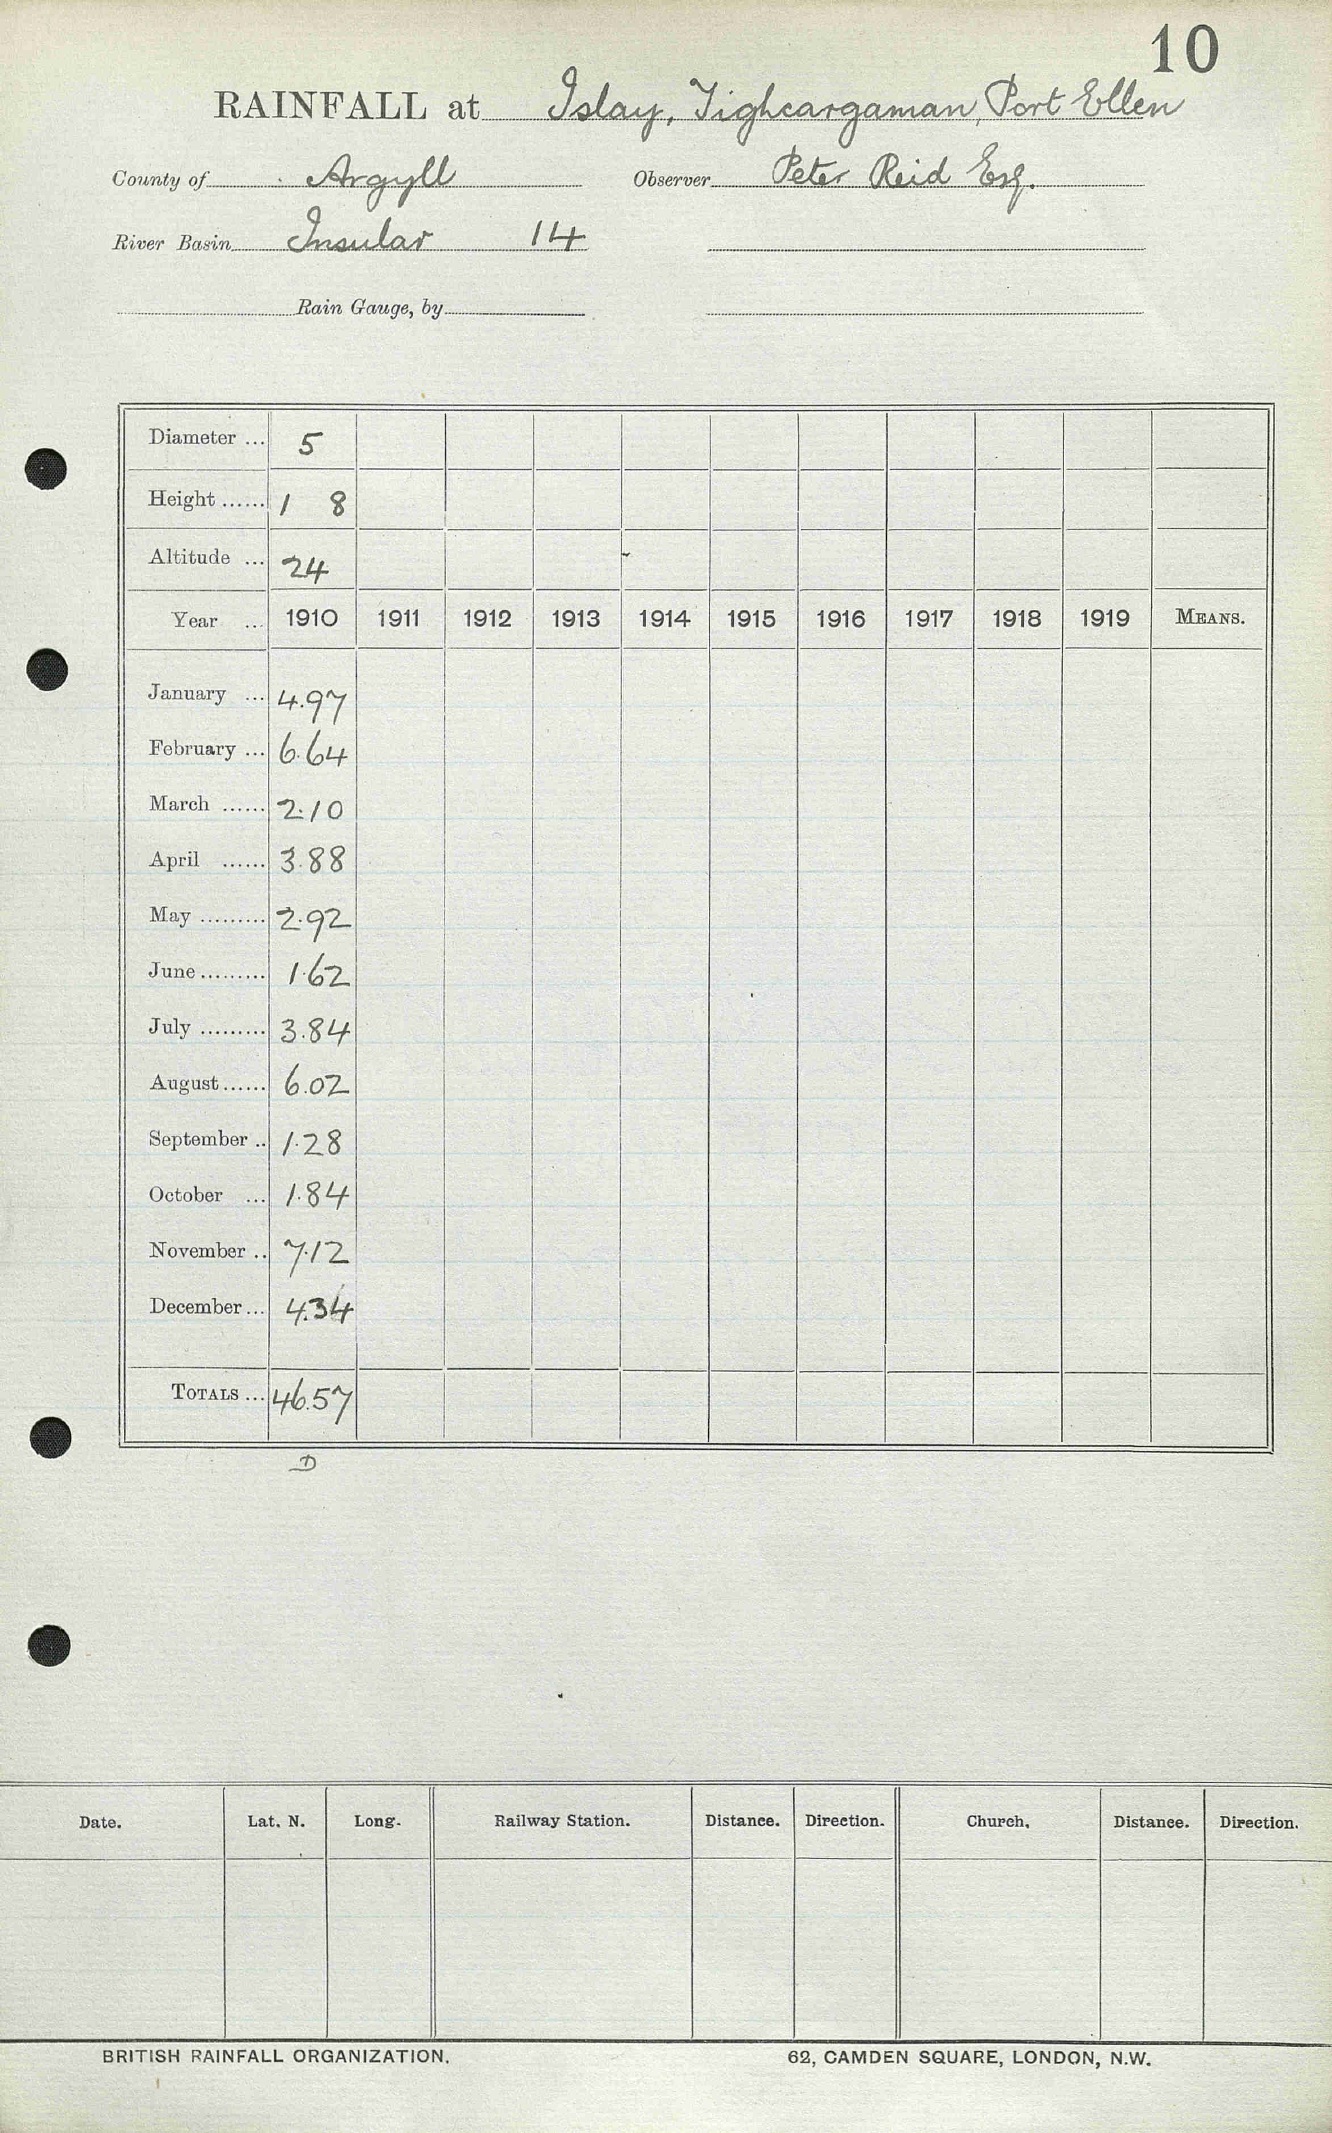 10
RAINFALL at Islay, Tighcargaman, Port Ellen
County of Argyll Observer Peter Reid Esq.
River Basin Insular 14
Rain Gauge, by
Diameter ... 5
Height ...... 1 8
Altitude ... 24
Year ... 1910 1911 1912 1913 1914 1915 1916 1917 1918 1919 MEANS.
January ... 4.97
February ... 6.64
March ...... 2.10
April ...... 3.88
May ......... 2.92
June ......... 1.62
July ......... 3.84
August ...... 6.02
September .. 1.28
October ... 1.84
November .. 7.12
December ... 4.34
TOTALS ... 46.57
D
Date. Lat. N. Long. Railway Station. Distance. Direction. Church. Distance. Direction.
BRITISH RAINFALL ORGANIZATION. 62, CAMDEN SQUARE, LONDON, N.W.